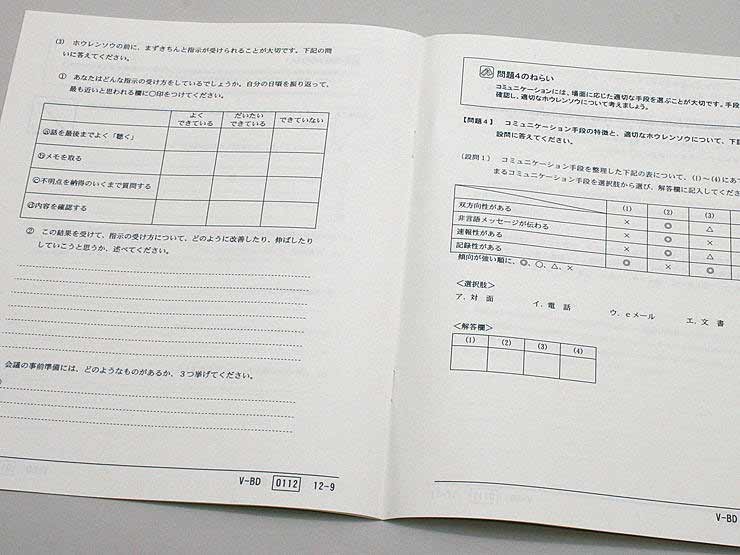 (3) ホウレンソウの前に、まずきちんと指示が受けられることが大切です。下記の問
いに答えてください。
① あなたはどんな指示の受け方をしているでしょうか。自分の日頃を振り返って、
最も近いと思われる欄に○印をつけてください。
よく できている だいたい できている できていない
㋐話を最後までよく「聴く」
㋑メモを取る
㋒不明点を納得のいくまで質問する
㋓内容を確認する
② この結果を受けて、指示の受け方について、どのように改善したり、伸ばしたり
していこうと思うか、述べてください。
会議の事前準備には、どのようなものがあるか、3つ挙げてください。
V-BD 0112 12-9
問題4のねらい
コミュニケーションには、場面に応じた適切な手段を選ぶことが大切です。手段
確認し、適切なホウレンソウについて考えましょう。
【問題4】 コミュニケーション手段の特徴と、適切なホウレンソウについて、下記
設問に答えてください。
(設問1) コミュニケーション手段を整理した下記の表について、(1)~(4)にあて
まるコミュニケーション手段を選択肢から選び、解答欄に記入してくださ
(1) (2) (3)
双方向性がある × ◎ △
非言語メッセージが伝わる × ◎ △
速報性がある ◎ △ ◎
記録性がある ◎ × ×
傾向が強い順に、◎、○、△、×
<選択肢>
ア. 対 面 イ. 電 話 ウ. eメール エ. 文 書
<解答欄>
(1) (2) (3) (4)
V-BD